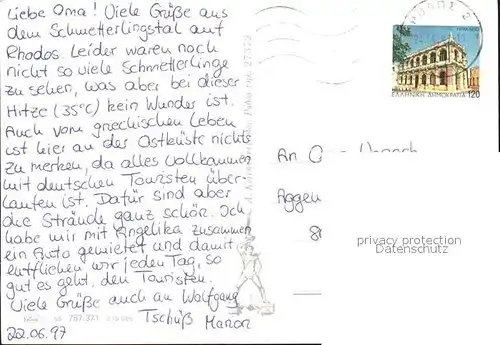 Liebe Oma! Viele Grüße aus
dem Schmetterlingstal auf
Rhodos. Leider waren noch
nicht so viele Schmetterlinge
zu sehen, was aber bei dieser
Hitze (35°C) kein Wunder ist.
Auch vom griechischen Leben
ist hier an der Ostküste nichts
zu merken, da alles vollkommen
mit deutschen Touristen über-
laufen ist. Dafür sind aber
die Strände ganz schön. Ich
habe mir mit Angelika zusammen
ein Auto gemietet und damit
entfliehen wir jeden Tag, so
gut es geht, den Touristen.
Viele Grüße auch an Wolfgang
Tschüß Manon
22.06.97
ΕΛΛΗΝΙΚΗ ΔΗΜΟΚΡΑΤΙΑ 120
An
Aggen
privacy protection
Datenschutz